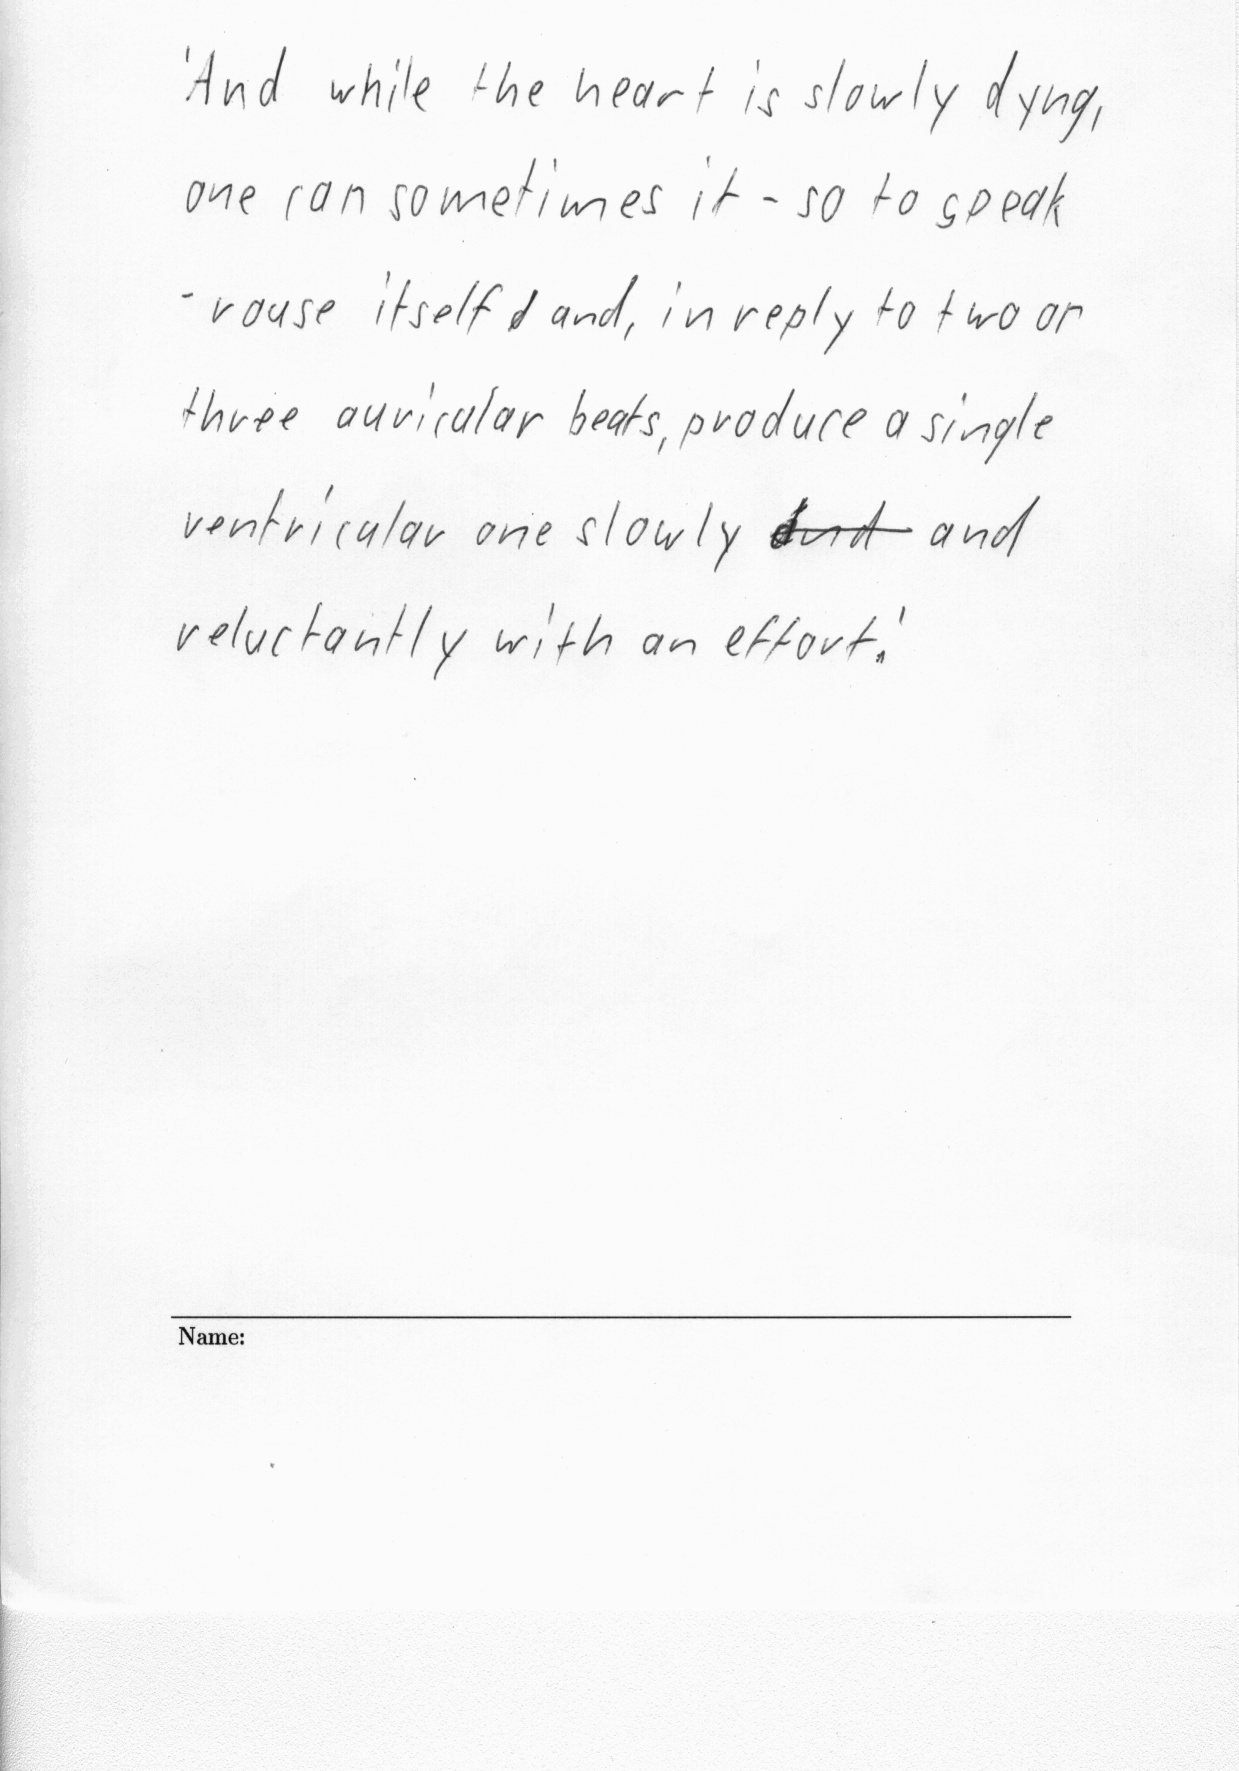 'And while the heart is slowly dyng,
one can sometimes it - so to speak
- rouse itself and, in reply to two or
three auricular beats, produce a single
ventricular one slowly and and
reluctantly with an effort.'
Name: